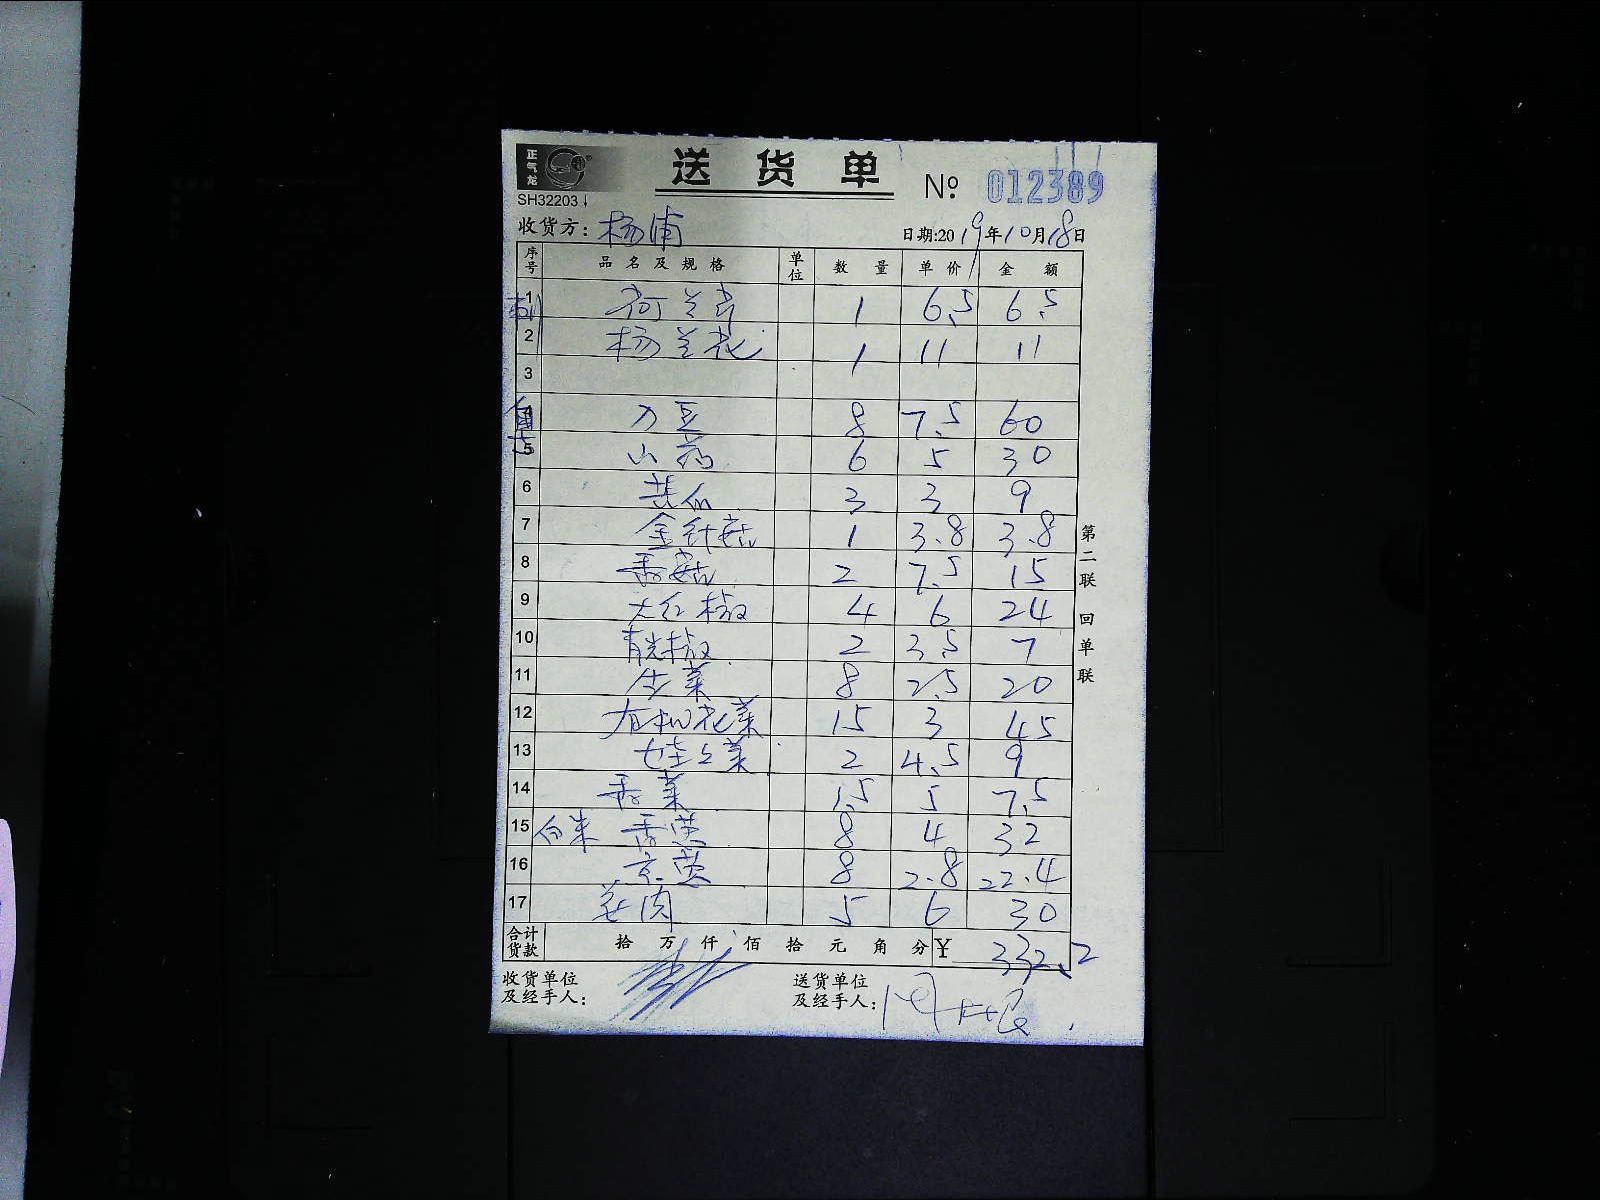 正气龙
送 货 单
№ 012389
SH32203↓
收货方：杨浦
日期:2019年10月18日
序号 品名及规格 单位 数量 单价 金额
1 荷兰芹 1 6.5 6.5
2 杨兰花 1 11 11
3
4 刀豆 8 7.5 60
5 山药 6 5 30
6 3 3 9
7 金针菇 1 3.8 3.8
8 香菇 2 7.5 15
9 大红椒 4 6 24
10 青尖椒 2 3.5 7
11 生菜 8 2.5 20
12 有机花菜 15 3 45
13 2 4.5 9
14 香菜 1.5 5 7.5
15 8 4 32
16 8 2.8 22.4
17 5 6 30
合计货款 拾 万 仟 佰 拾 元 角 分 ¥ 332.2
收货单位及经手人：
送货单位及经手人：
第二联 回单联